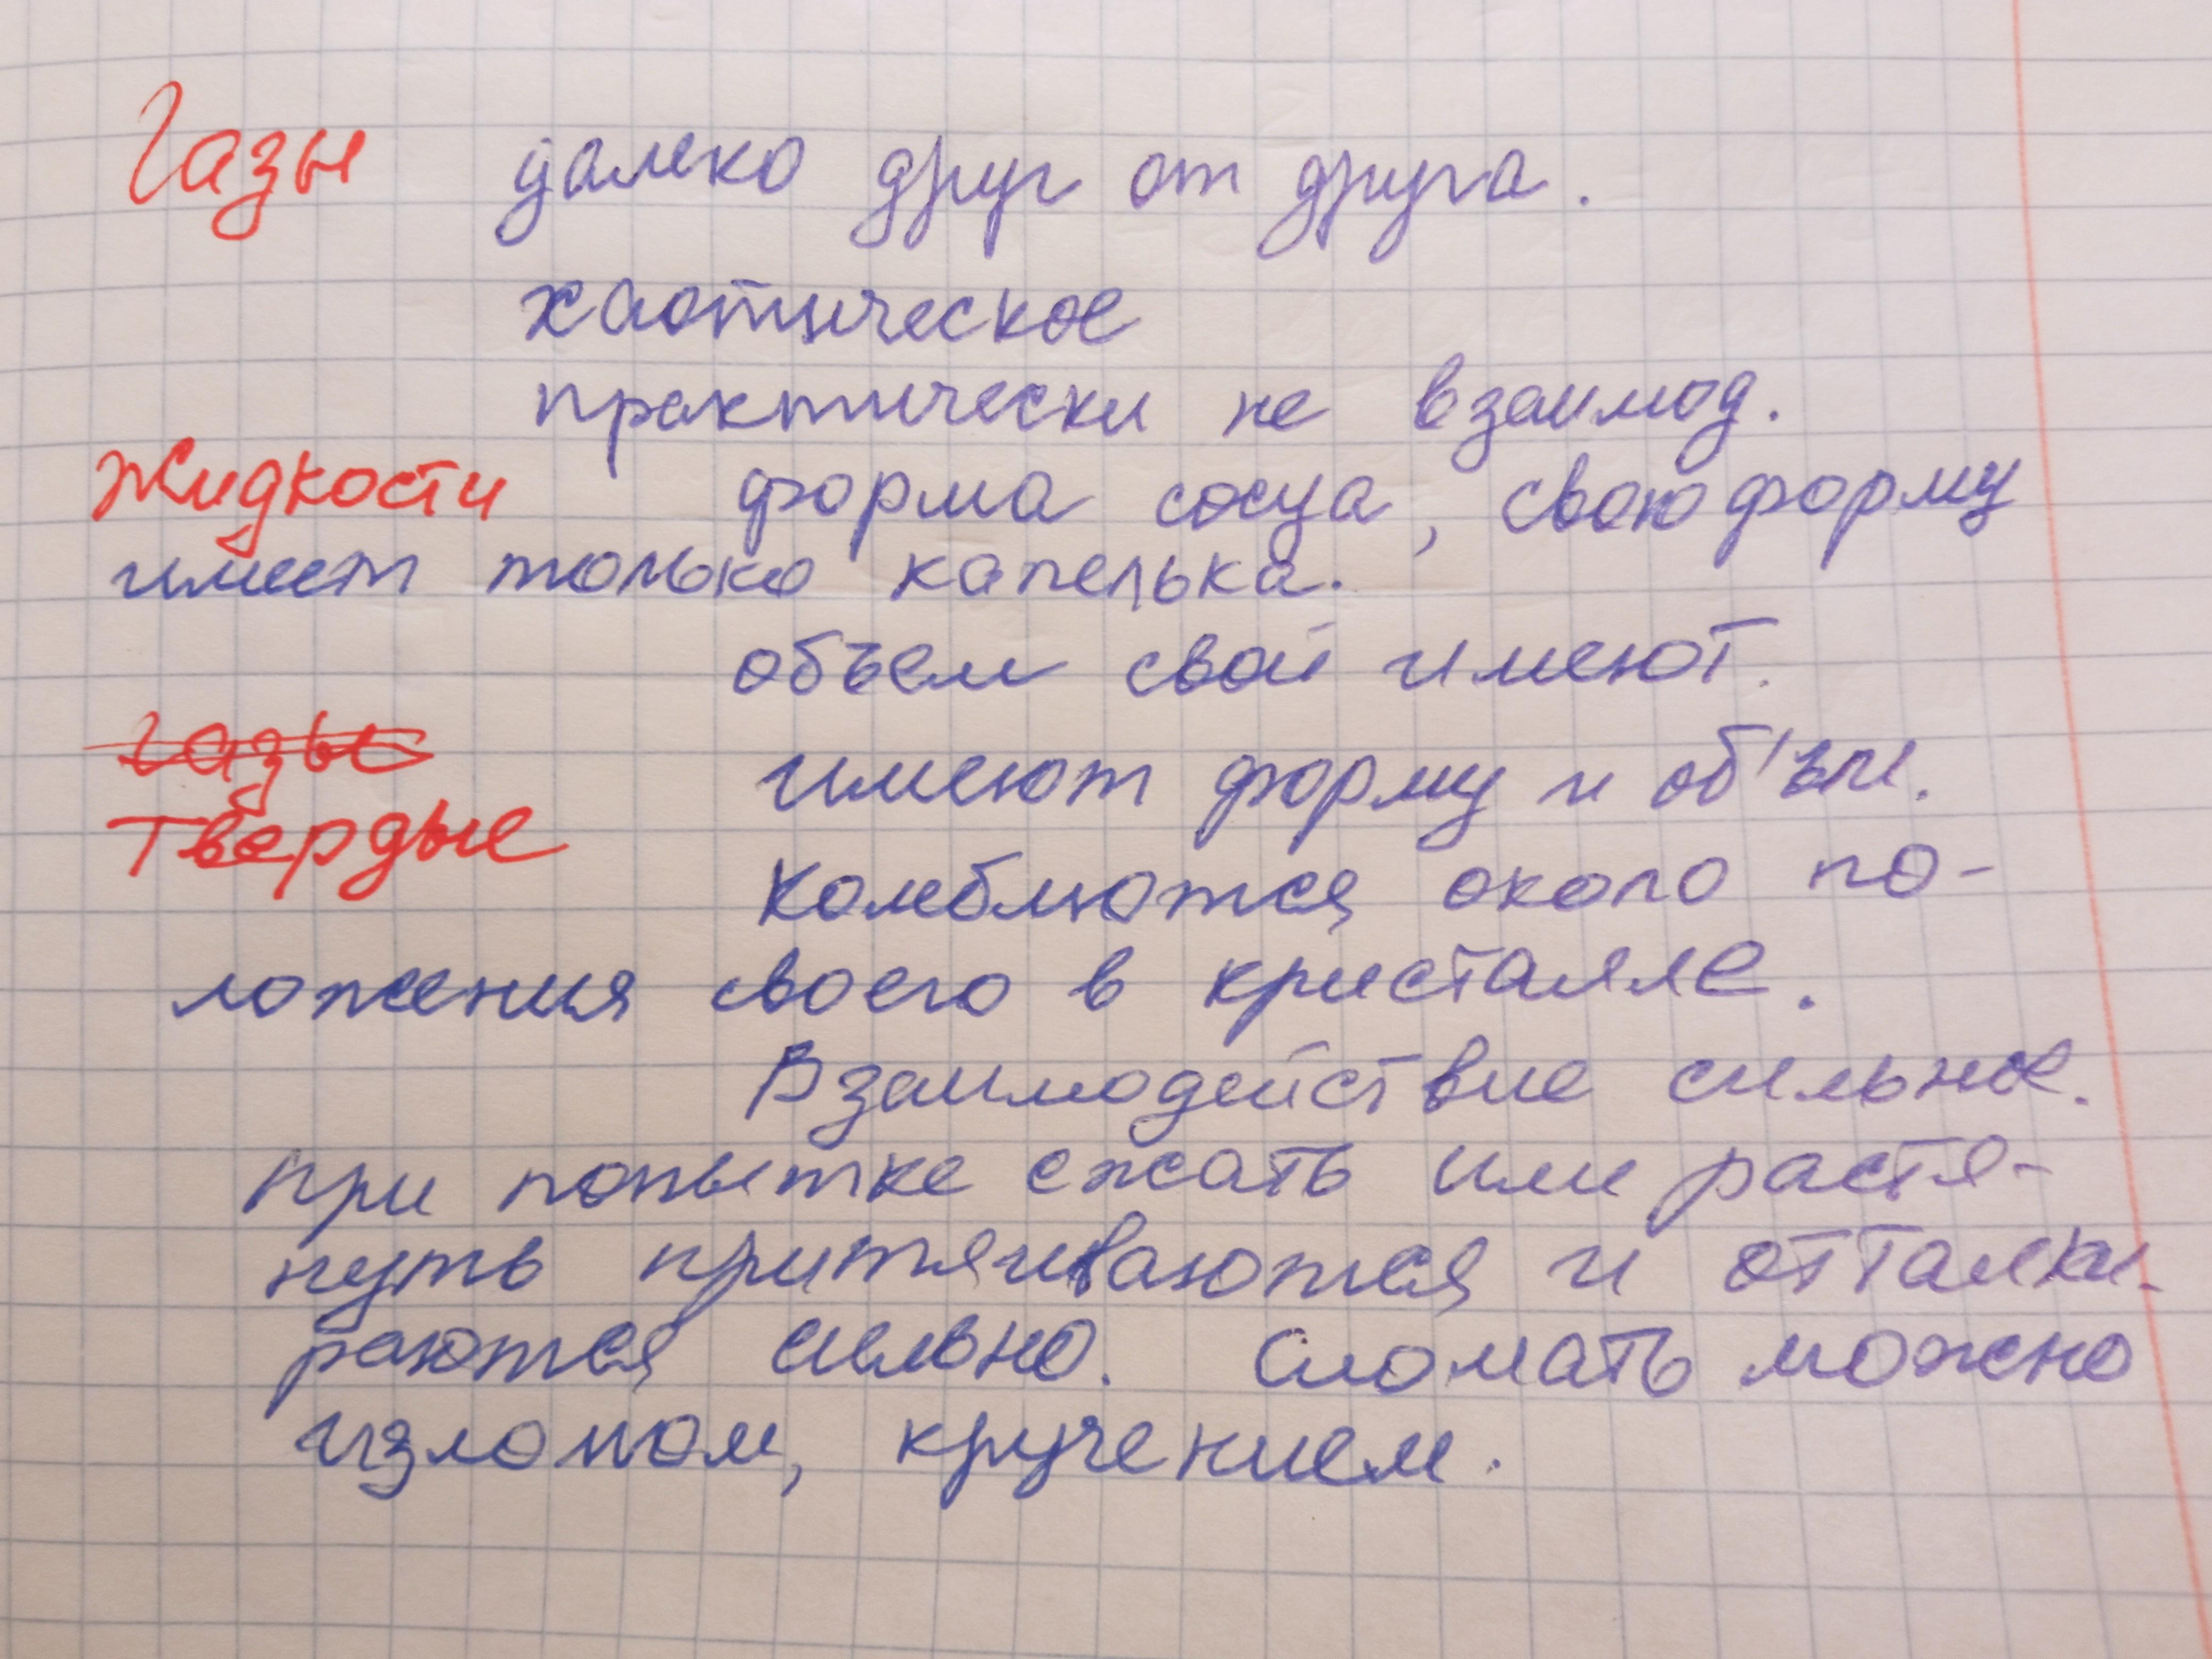 Газы далеко друг от друга.
хаотическое
практически не взаимод.
Жидкости форма сосуа, свою форму
имеет только капелька.
объем свой имеют.
газы
Твердые имеют форму и об'ъм.
Колеблются около по-
ложения своего в кристалле.
Взаимодействие сильное.
при попытке сжать или растя-
нуть притягиваются и отталки-
раются сильно. Сломать можно
изломом, кручением.